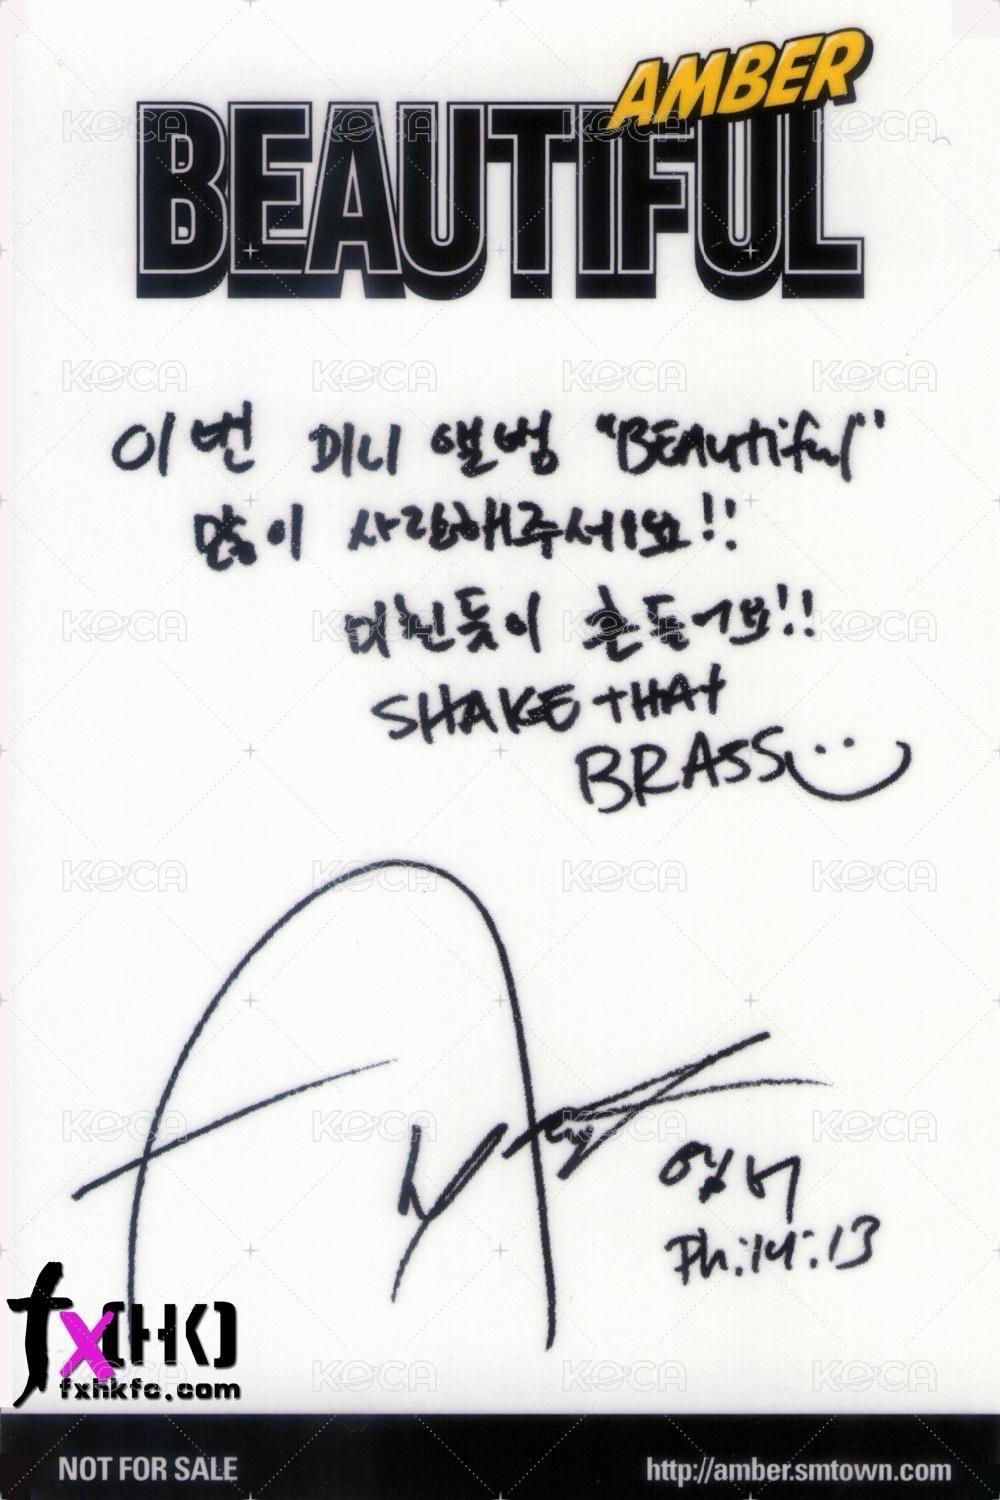 AMBER
BEAUTIFUL
이번 미니 앨범 "BEAutiful"
많이 사랑해주세요!!
미친듯이 흔들어요!!
SHAKE tHAt
BRASS
엠버
Ph:14:13
fx(HK)
fxhkfc.com
NOT FOR SALE
http://amber.smtown.com
KOCA